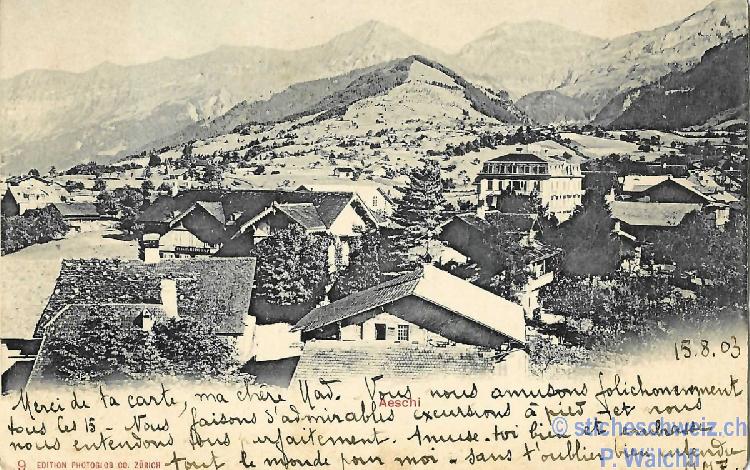 15.8.03
Aeschi
Merci de ta carte, ma chère Mad. Vous nous amusons folichonnement
tous les 15 - Nous faisons d'admirables excursions à pied et nous
nous entendons tous parfaitement. Amuse-toi bien et
tout le monde pour moi - sans t'oublier bien entendu
© sticheschweiz.ch
P. Wälchli
9 EDITION PHOTOGLOB CO. ZÜRICH